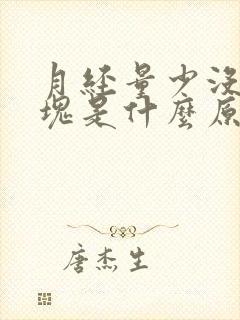 月經量少沒
塊是什麼原
唐杰生